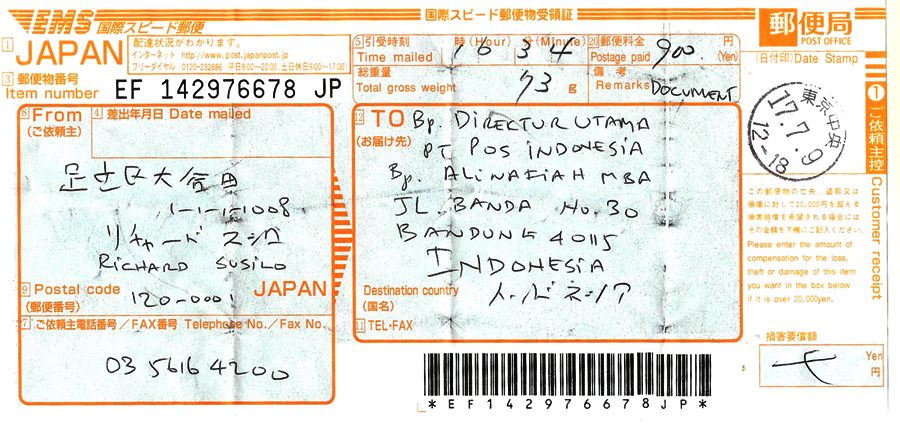 EMS 国際スピード郵便
国際スピード郵便物受領証
郵便局
POST OFFICE
1
JAPAN
配達状況がわかります。
インターネット http://www.post.japanpost.jp/
フリーダイヤル 0120-232886 平日8:00~20:00 土日休日9:00~17:00
5 引受時刻 時(Hour) 分(Minute)
Time mailed 16 34
20 郵便料金 900 円
Postage paid (Yen)
(日付印) Date Stamp
3 郵便物番号
Item number EF 142976678 JP
総重量
Total gross weight 73 g
備考
Remarks DOCUMENT
東京中央
17.7.9
12-18
1 ご依頼主控 Customer receipt
8 From
(ご依頼主)
4 差出年月日 Date mailed
足立区大谷田
1-1-1-1008
リチャード スシロ
RICHARD SUSILO
9 Postal code JAPAN
(郵便番号) 120-0001
7 ご依頼主電話番号/FAX番号 Telephone No./Fax No.
03 5616 4200
12 TO
(お届け先)
Bp. DIRECTUR UTAMA
PT POS INDONESIA
Bp. ALINAFIAH MBA
JL. BANDA No. 30
BANDUNG 40115
INDONESIA
Destination country
(国名) インドネシア
11 TEL・FAX
この郵便物の亡失、盗取又は
損傷に対して20,000円を超える
損害賠償を希望される場合には
その金額を下欄にご記入ください。
Please enter the amount of
compensation for the loss,
theft or damage of this item
you want in the box below
if it is over 20,000yen.
損害要償額
Yen
円
*EF142976678JP*